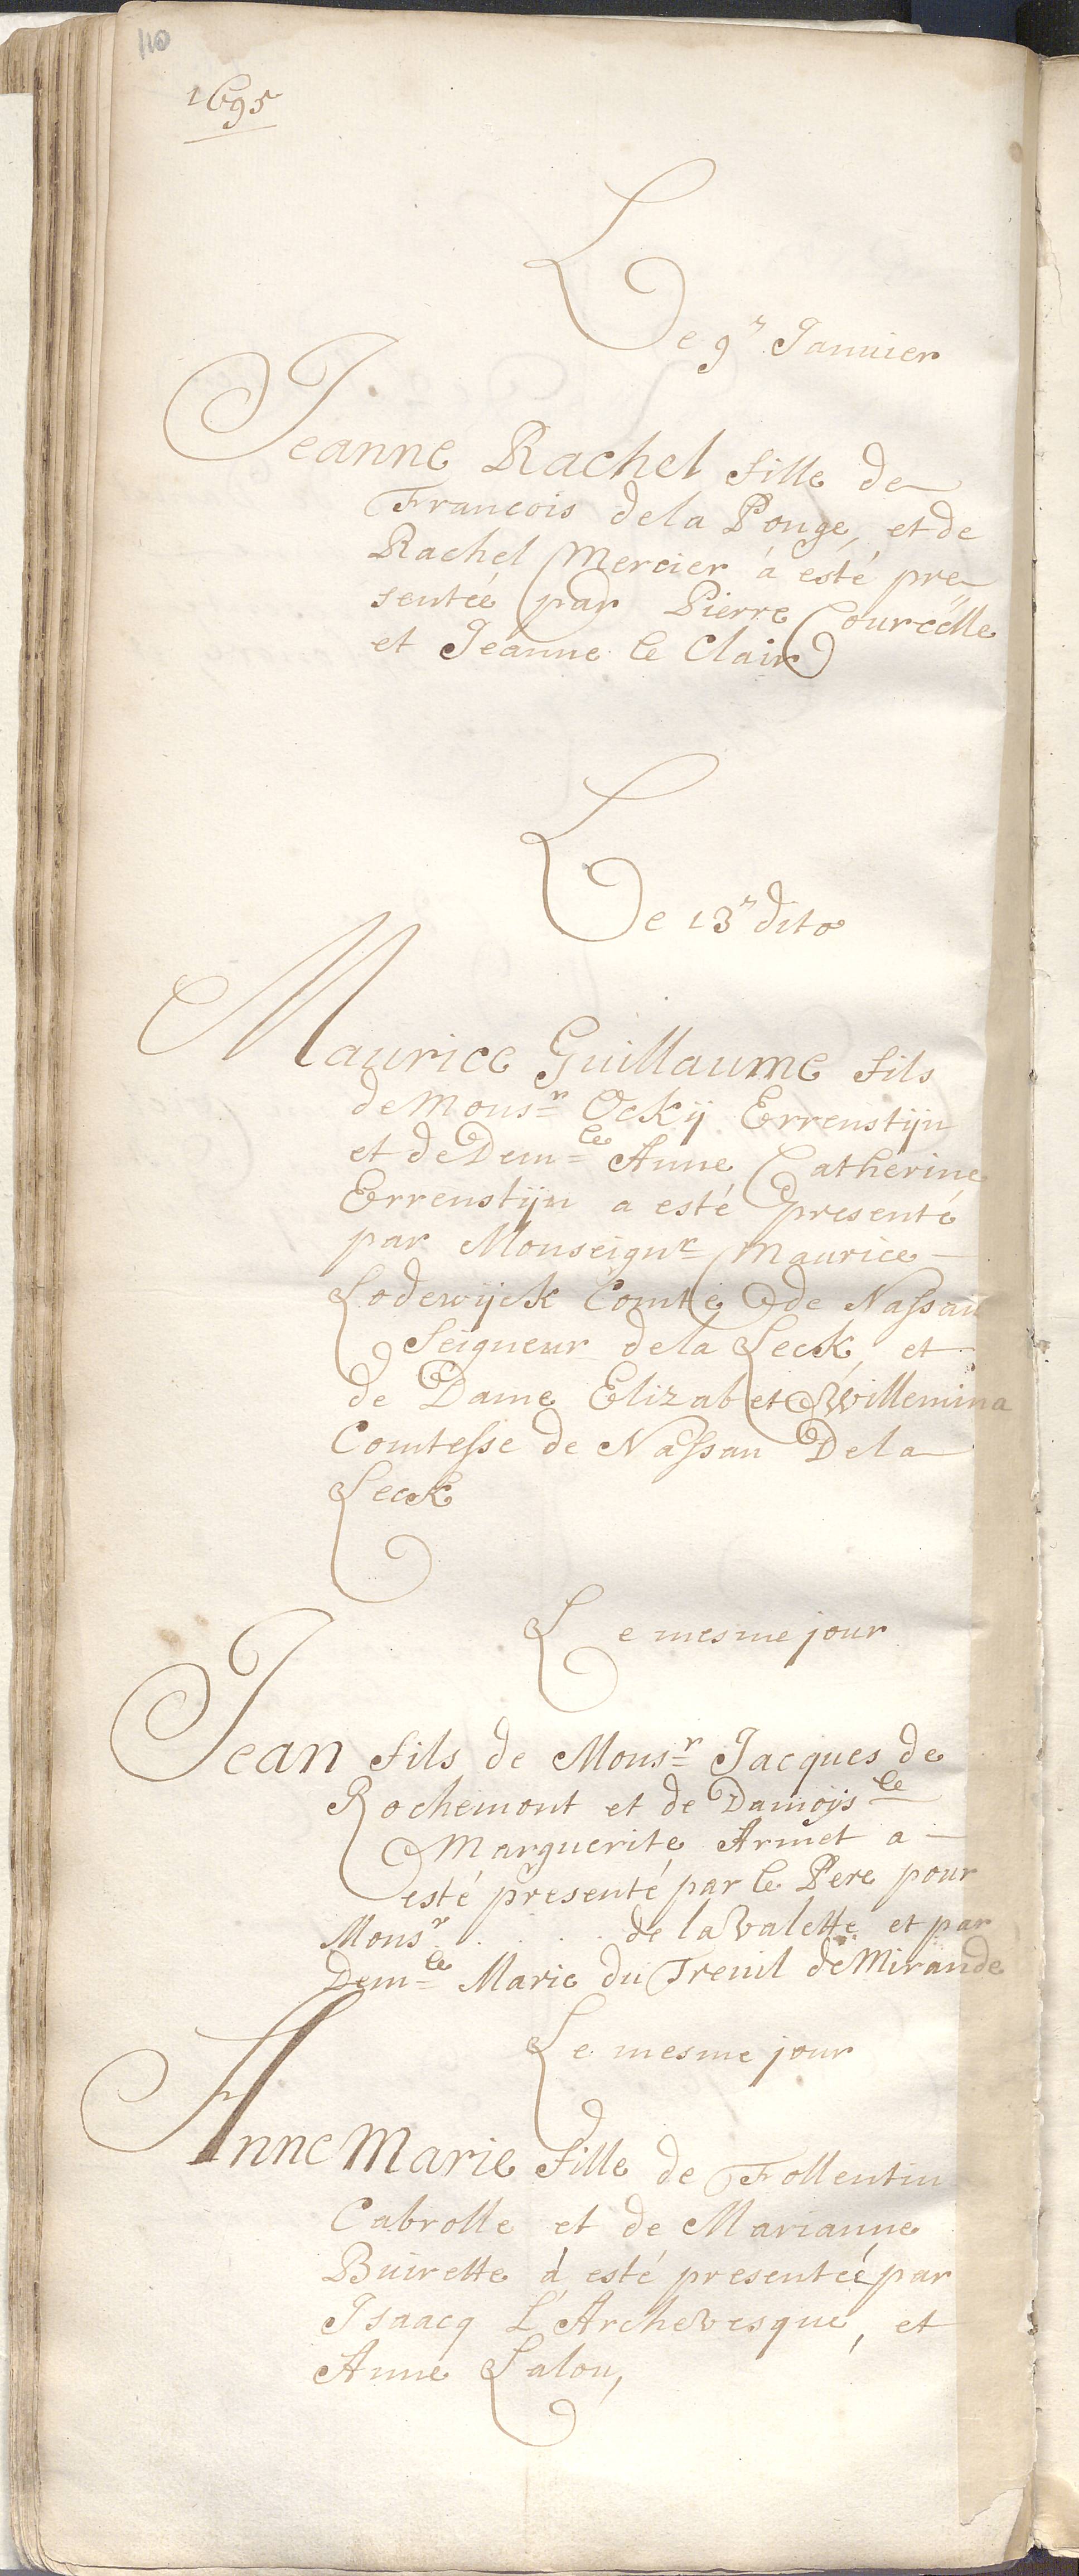 110
1695
Le 9.r Janvier
Jeanne Rachel fille de
Francois dela Ponge, et de
Rachel Mercier á esté pre
sentée par Pierre Courcelle
et Jeanne le Clair
Le 13.r dito
Maurice Guillaume fils
de Mons.r Ockÿ Errenstÿn
et de Dem.le Anne Catherine
Errenstÿn a esté presenté
par Monseign.r Maurice
Lodewÿck Comte de Nassau
Seigneur dela Leck, et
de Dame Elizabet Willemina
Comtesse de Nassau Dela
Leck
Le mesme jour
Jean fils de Mons.r Jacques de
Rochemont et de Damoÿs.le
Marguerite Armet a
esté presenté par le Pere pour
Mons.r . . . . de la Valette et par
Dem.le Marie du Treuil de Mirande
Le mesme jour
Anne Marie fille de Follentin
Cabrolle et de Marianne
Buirette á esté presentée par
Isaacq L'Archevesque, et
Anne Lalou,